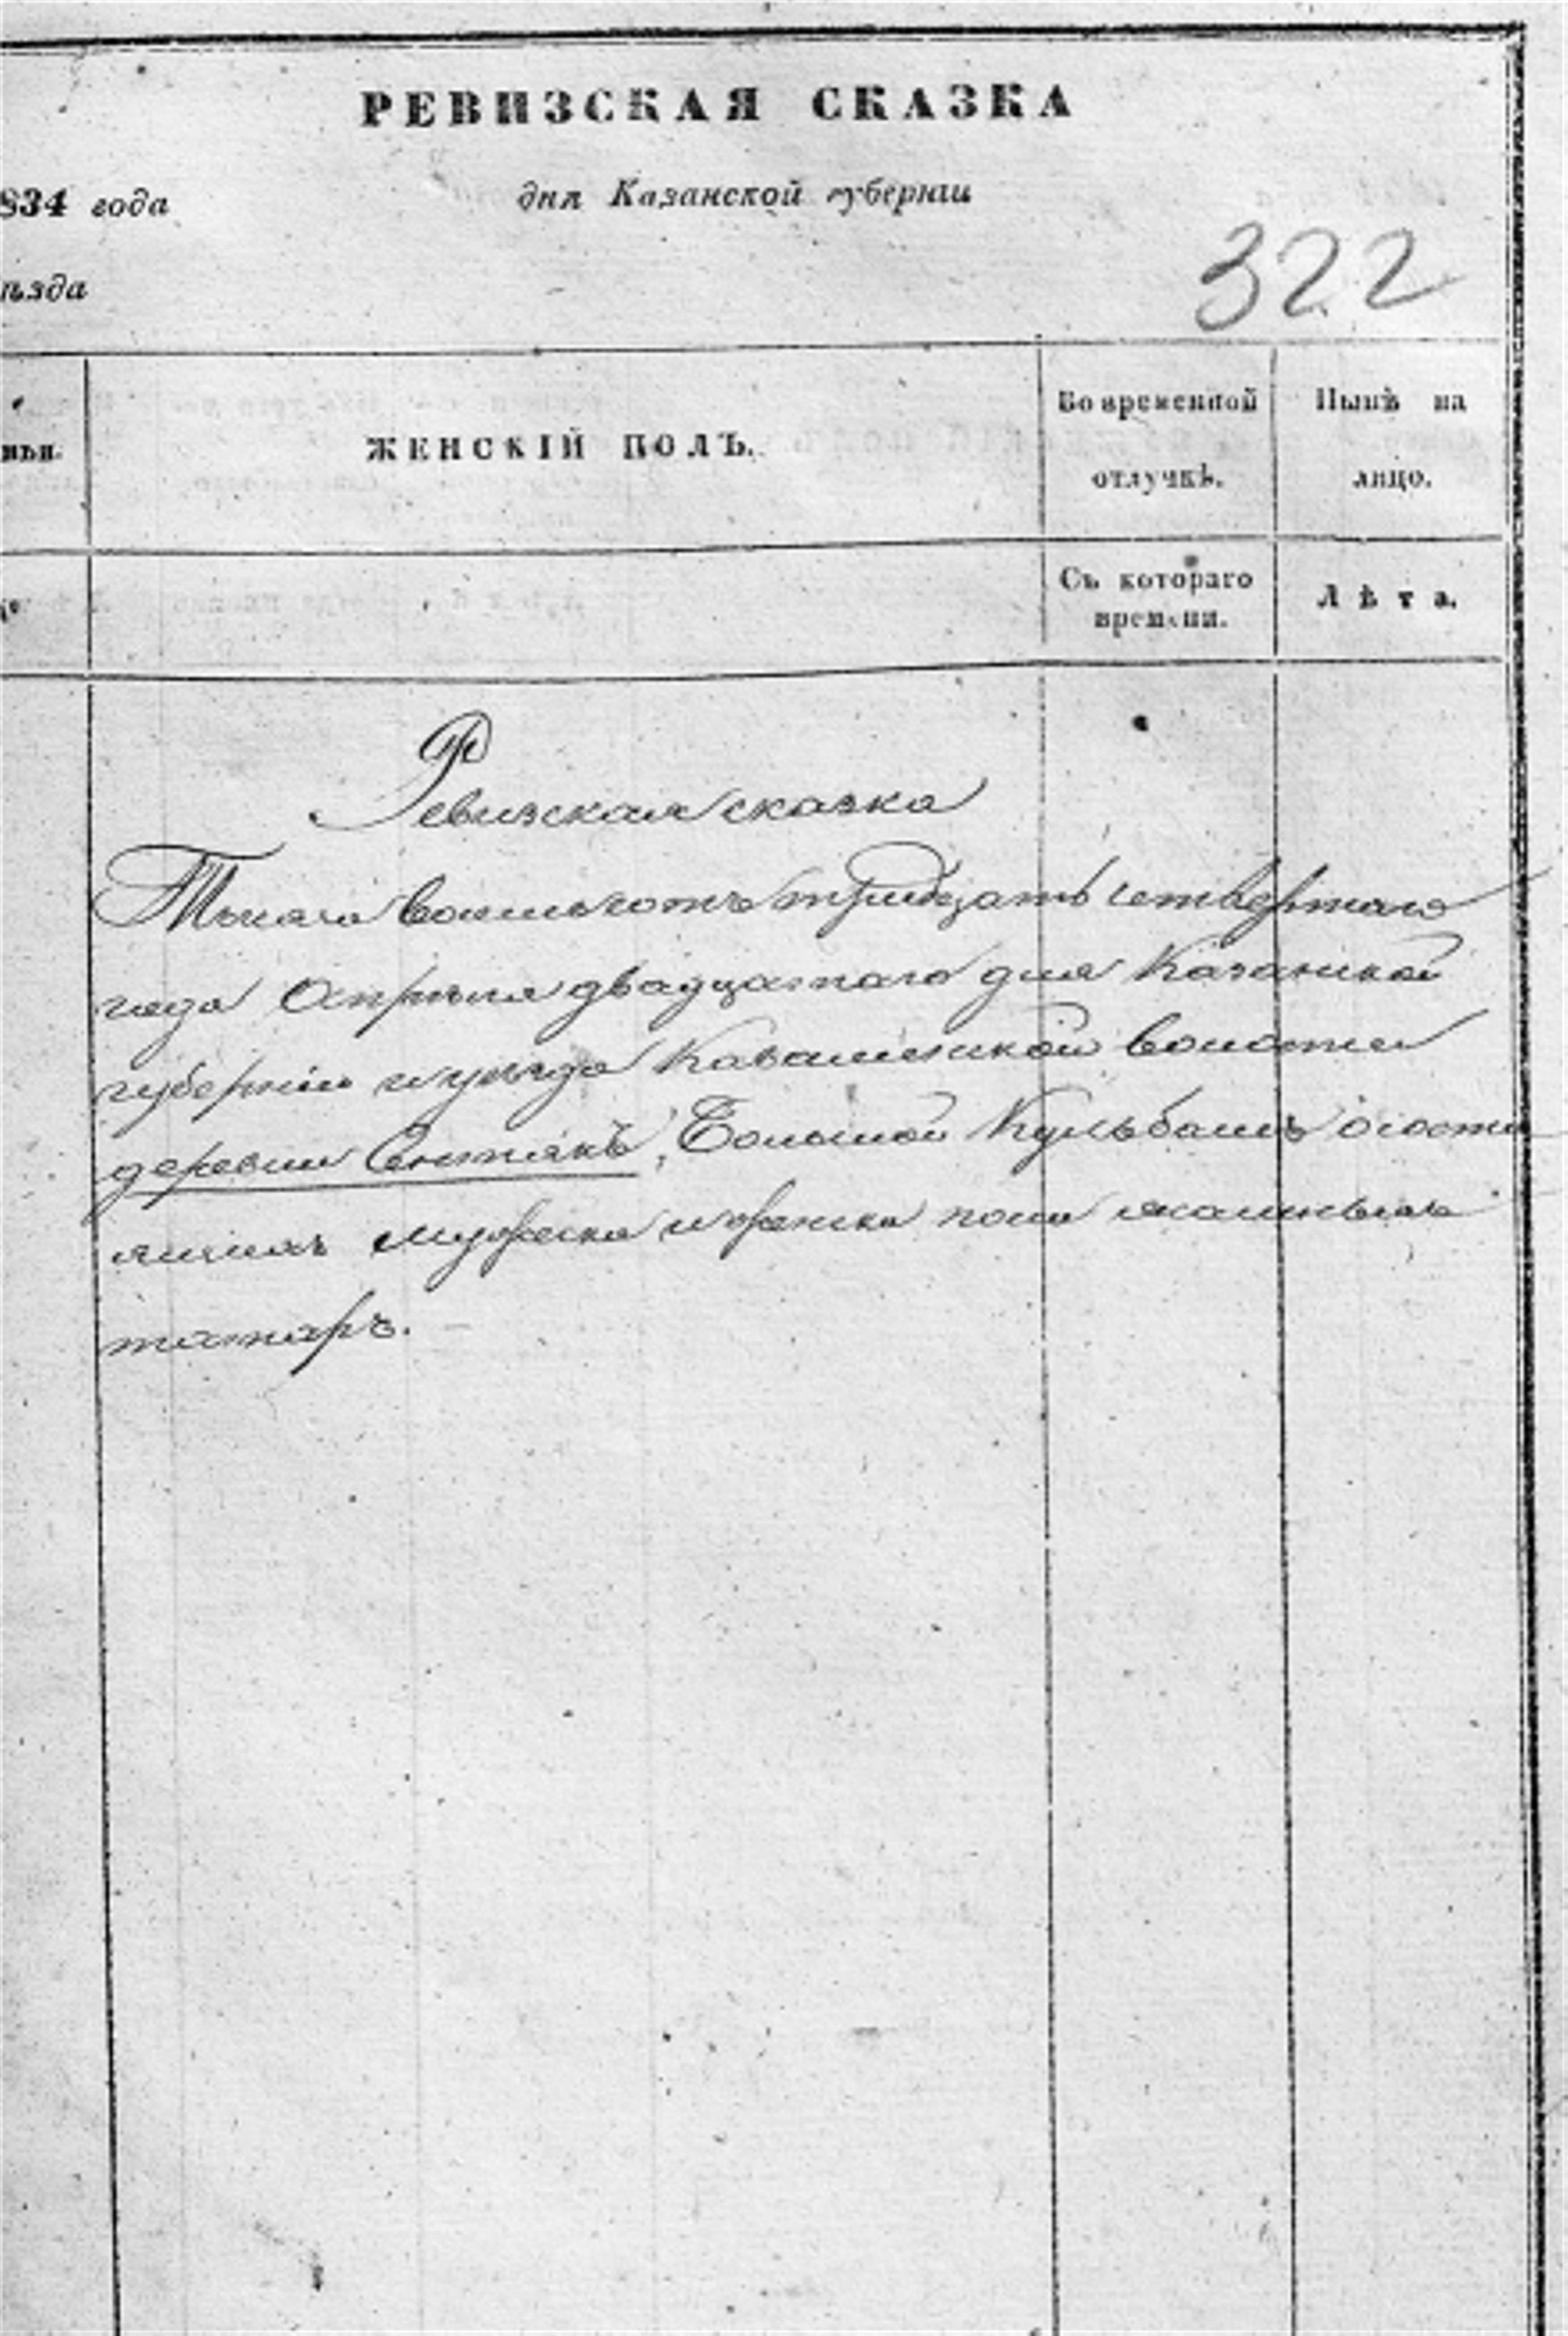 РЕВИЗСКАЯ СКАЗКА
834 года
дня Казанской губерніи
ѣзда
322
ЖЕНСКІЙ ПОЛЪ.
Во временной
отлучкѣ.
Нынѣ на
лицо.
Съ котораго
времени.
Лѣта.
Ревизская сказка
Тысяча восемьсотъ тридцать четвертаго
года Апрѣля двадцатаго дня Казанской
губерніи и уѣзда волости
деревни Сентякъ, Большой Кульбашъ о состо
ящихъ мужеска и женска пола ясашныхъ
татаръ.